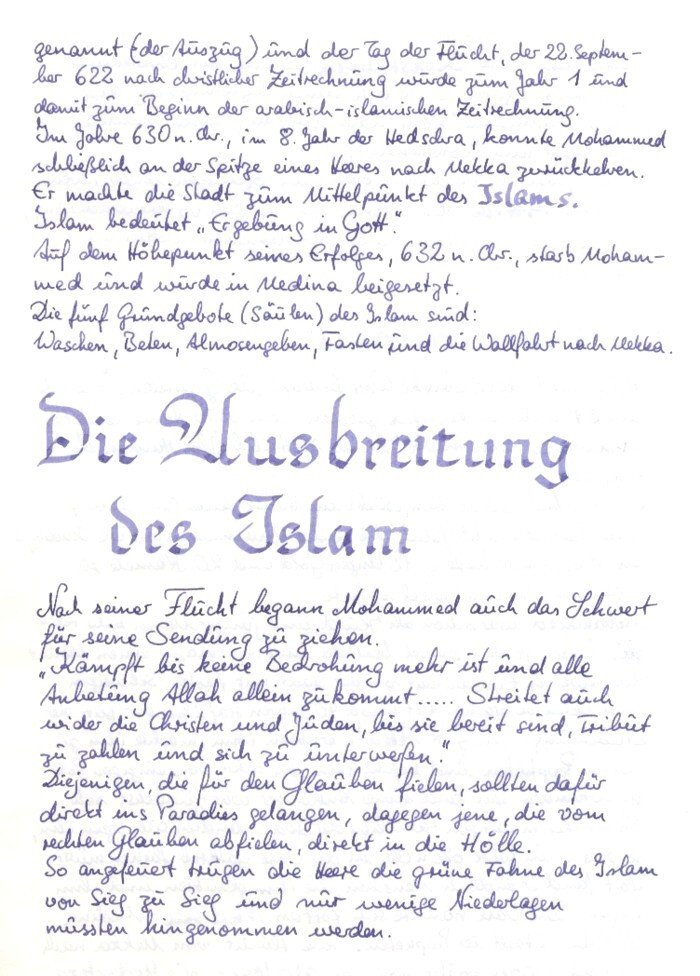 genannt (der Auszug) und der Tag der Flucht, der 22. Septem-
ber 622 nach christlicher Zeitrechnung wurde zum Jahr 1 und
damit zum Beginn der arabisch-islamischen Zeitrechnung.
Im Jahre 630 n. Chr., im 8. Jahr der Hedschra, konnte Mohammed
schließlich an der Spitze eines Heeres nach Mekka zurückkehren.
Er machte die Stadt zum Mittelpunkt des Islams.
Islam bedeutet „Ergebung in Gott“.
Auf dem Höhepunkt seines Erfolges, 632 n. Chr., starb Moham-
med und wurde in Medina beigesetzt.
Die fünf Grundgebote (Säulen) des Islam sind:
Waschen, Beten, Almosengeben, Fasten und die Wallfahrt nach Mekka.
Die Ausbreitung
des Islam
Nach seiner Flucht begann Mohammed auch das Schwert
für seine Sendung zu ziehen.
„Kämpft bis keine Bedrohung mehr ist und alle
Anbetung Allah allein zukommt...... Streitet auch
wider die Christen und Juden, bis sie bereit sind, Tribut
zu zahlen und sich zu unterwefen.“
Diejenigen, die für den Glauben fielen, sollten dafür
direkt ins Paradies gelangen, dagegen jene, die vom
rechten Glauben abfielen, direkt in die Hölle.
So angefeuert trugen die Heere die grüne Fahne des Islam
von Sieg zu Sieg und nur wenige Niederlagen
müssten hingenommen werden.